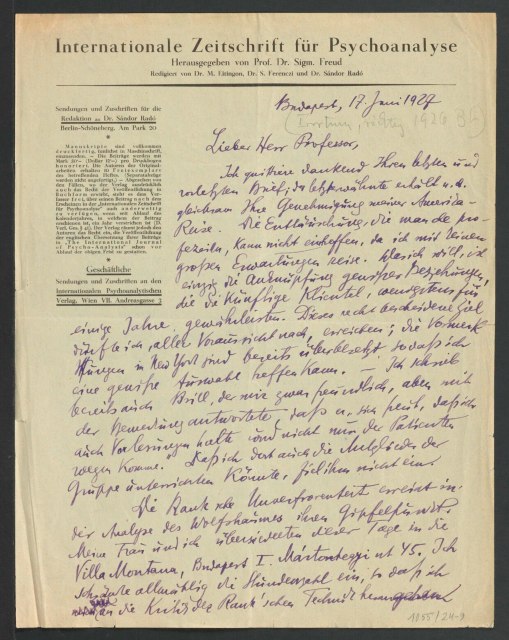 Internationale Zeitschrift für Psychoanalyse
Herausgegeben von Prof. Dr. Sigm. Freud
Redigiert von Dr. M. Eitingon, Dr. S. Ferenczi und Dr. Sándor Radó
Sendungen und Zuschriften für die
Redaktion an Dr. Sándor Radó
Berlin-Schöneberg, Am Park 20
Manuskripte sind vollkommen
druckfertig,
einzusenden. — Die Beiträge werden mit
pro Druckbogen
honoriert. Die Autoren der Originalar-
beiten erhalten 10 Freiexemplare
des betreffenden Heftes.
werden nicht angefertigt. —
der Verlag ausdrücklich
auch das Recht der Veröffentlichung in
Buchform erwirbt, steht es den Autoren
frei, über seinen Beitrag nach dem
Erscheinen in der „Internationalen Zeitschrift
für Psychoanalyse" auch anderweitig
zu verfügen, wenn seit Ablauf des
Kalenderjahres, in welchem der Beitrag
erschienen ist, ein Jahr verstrichen ist
Der Verlag dient jedoch den
Autoren das Recht ein, die Veröffentlichung
der englischen Übersetzung ihrer Beiträge
in „The International Journal
of Psycho-Analysis" schon vor
Ablauf der obigen Frist zu gestatten.
Geschäftliche
Sendungen und Zuschriften an den
Internationalen Psychoanalytischen
Verlag, Wien VII. Andreasgasse 3
Budapest, 17. Juni 1927
Irrtum, richtig 1926
Lieber Herr Professor,
Ich quittiere dankend Ihren letzten und
vorletzten Brief; der letzterwähnte erhält u. a.
gleichsam Ihre Genehmigung meiner Amerika-
Reise. Die Enttäuschung, die man de pro-
fezeih, kann nicht eintreffen, da ich mit keinen
großen Erwartungen reise. Was ich will, ist
einzig die Anknüpfung gewisser Beziehungen,
die die künftige Klientel, wenigstens für
einige Jahre, gewährleisten. Dieses recht bescheidene Ziel
dürfte ich, aller Voraussicht nach, erreichen; die Vormerk
kungen in New York sind bereits überbesetzt sodaß ich
eine gewisse Auswahl treffen kann. — Ich schrieb
bereits auch Brill, der mir zwar freundlich, aber mit
der Bemerkung antwortete, daß er sich freut, daß ich
auch Vorlesungen halte und nicht nur der Patienten
wegen komme. Daß ich dort auch die Mitglieder der
Gruppe unterrichten könnte, fiel ihm nicht ein.
Die Rank'sche Unverfrorenheit erreicht in
der Analyse des Wolfstraumes ihren Gipfelpunkt.
Meine Frau und ich übersiedelten dieser Tage in die
Villa Montana, Budapest I. Mártonhegyi út 45. Ich
schränke allmählig die Stundenzahl ein, so daß ich
an die Kritik der Rank'schen Technik herangehen
1955/24-9